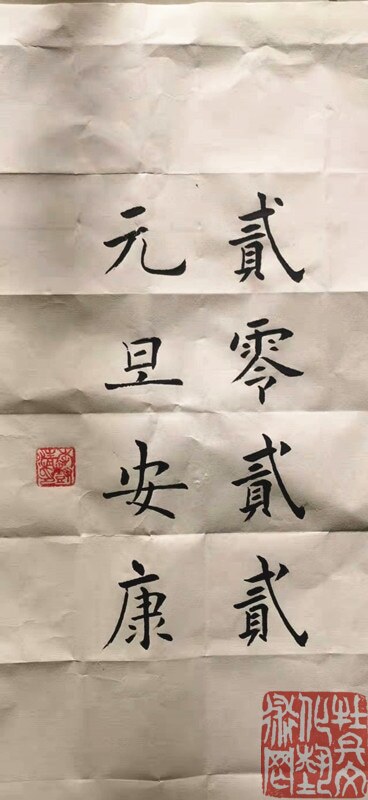 貳零貳貳
元旦安康